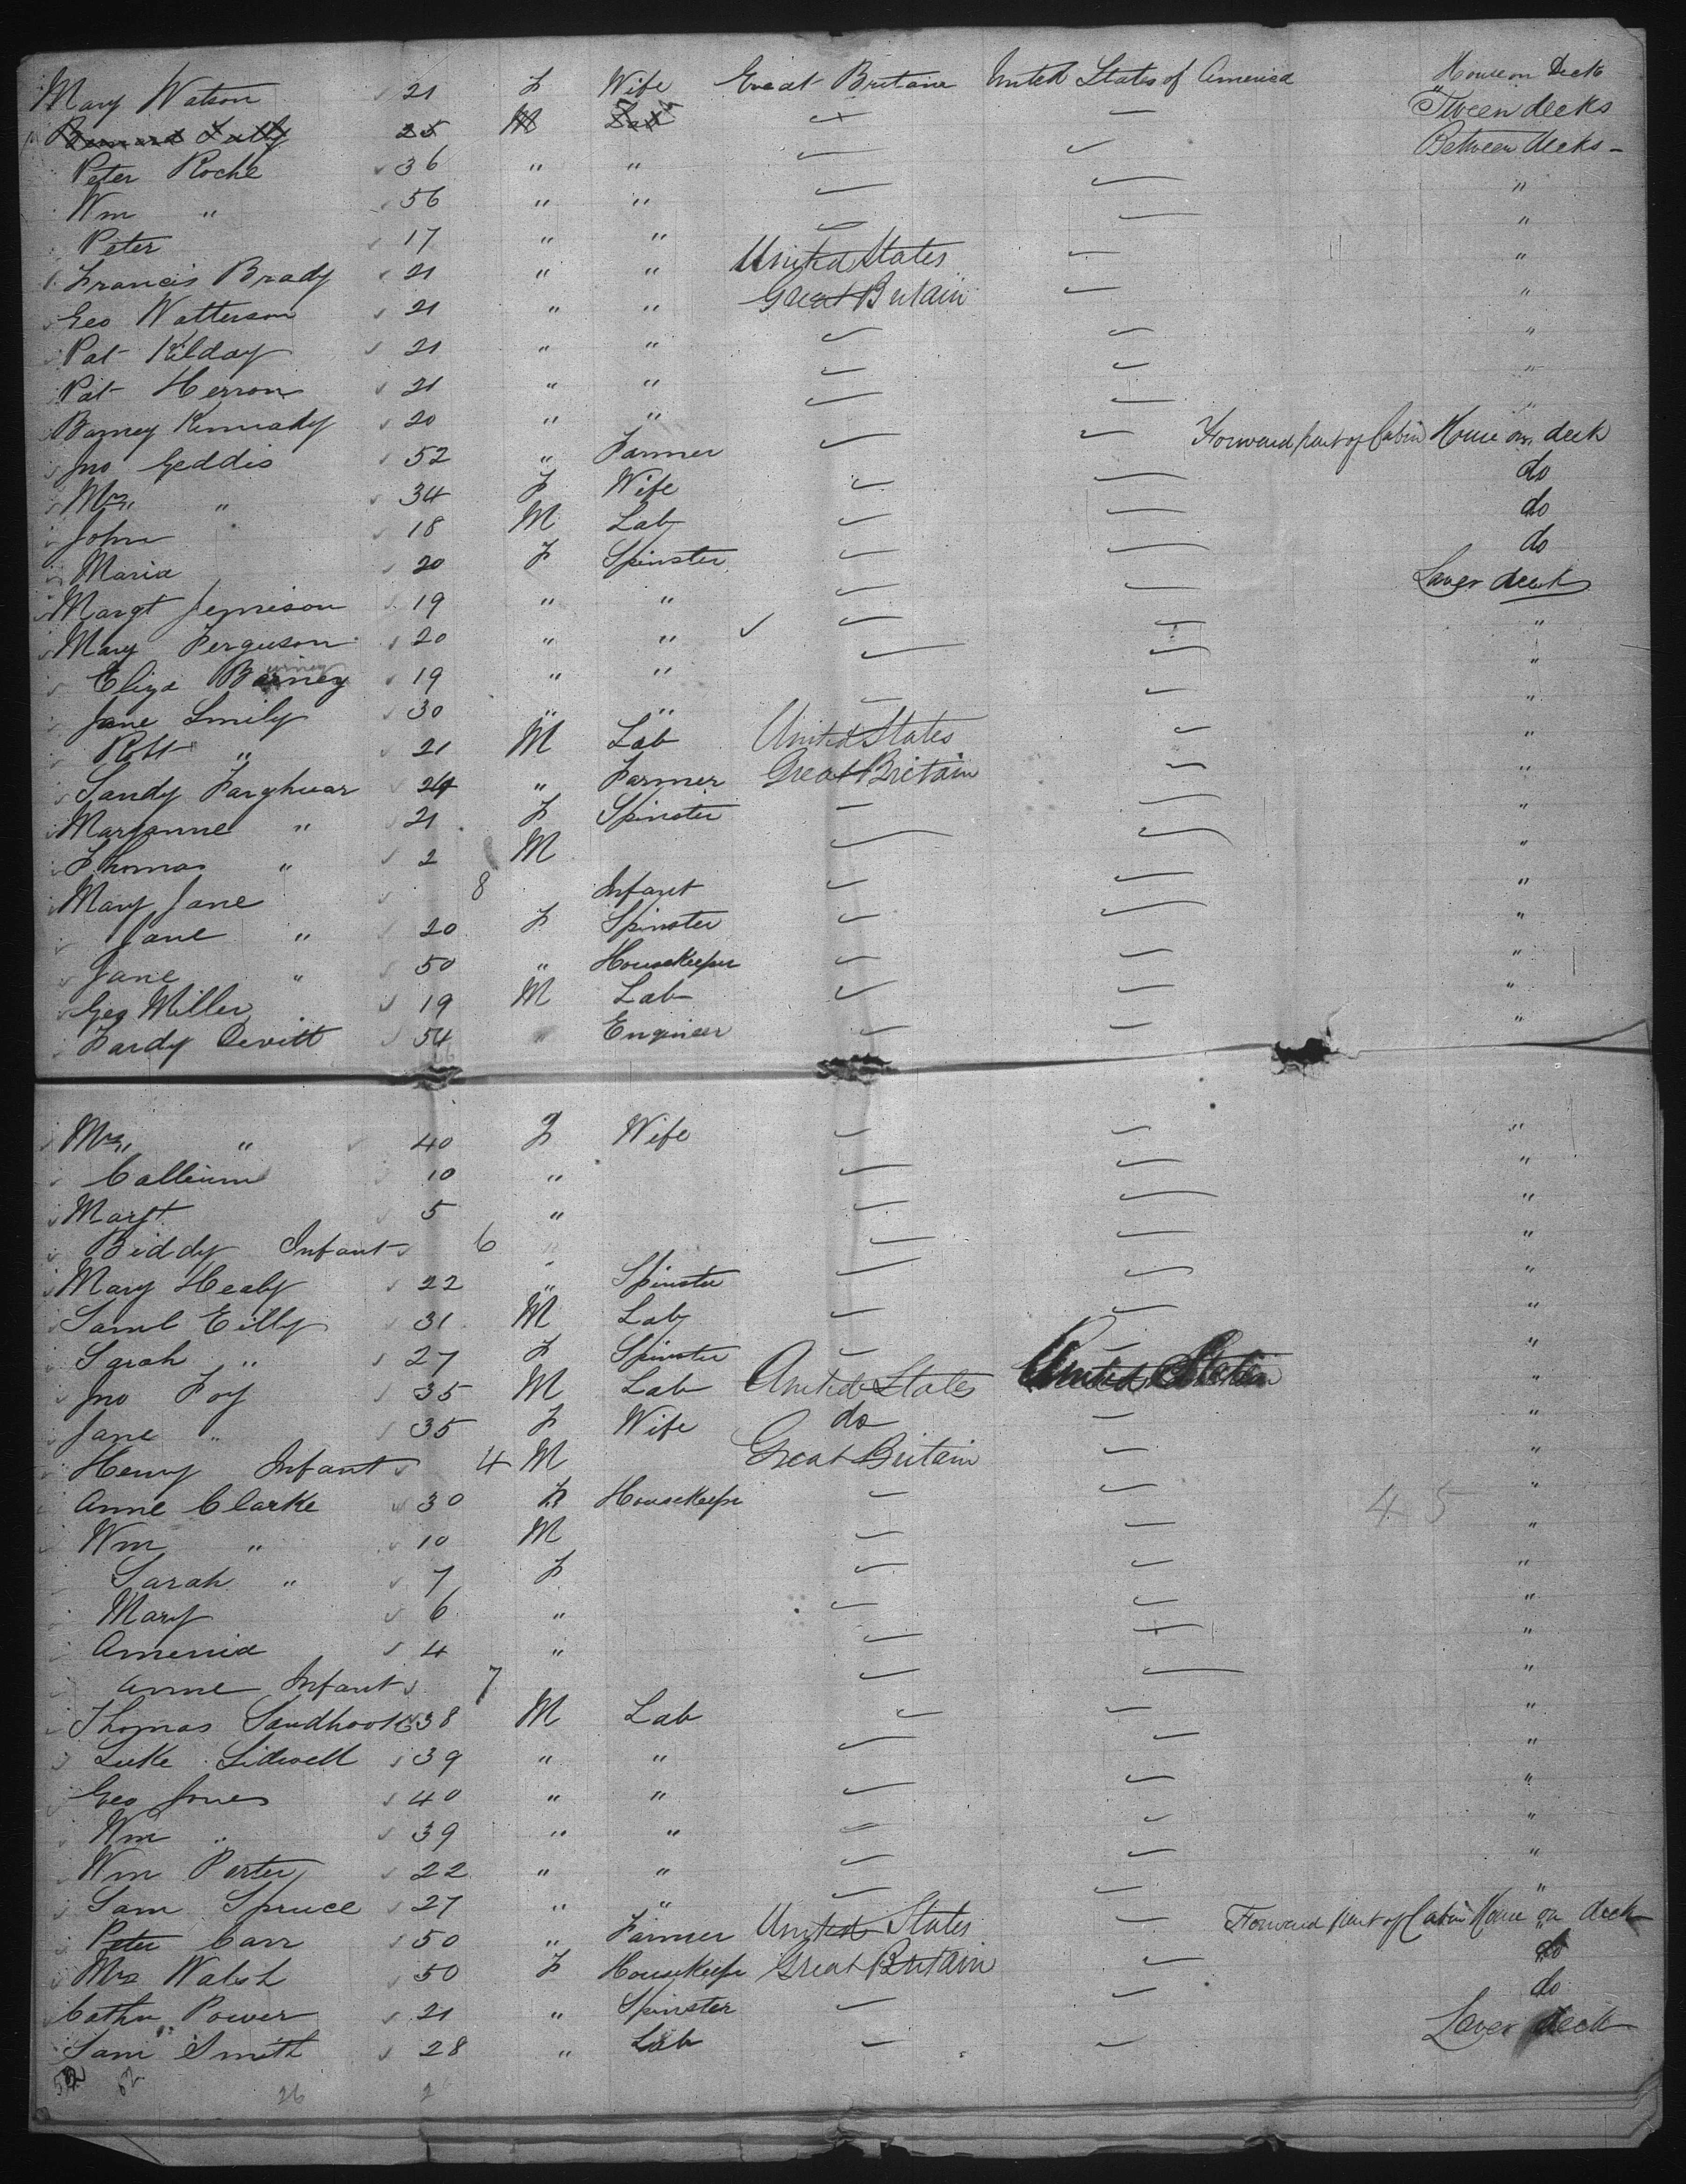 Mary Watson 21 F Wife Great Britain United States of America House on Deck
Bernard Lully 25 M Lab — — Tween decks
Peter Roche 36 " " — — Between decks -
Wm " 56 " " — — "
Peter 17 " " — — "
Francis Brady 21 " " United States — "
Geo Watterson 21 " " Great Britain — "
Pat Kilday 21 " " — — "
Pat Herron 21 " " — — "
Barney Kennady 20 " " — — "
Jno Geddis 52 " Farmer — — Forward part of Cabin House on deck
Mrs " 34 F Wife — — do
John 18 M Lab — — do
Maria 20 F Spinster — — do
Margt Jemison 19 " " — — Lower deck
Mary Ferguson 20 " " — — "
Eliza 19 " " — — "
Jane Smily 30 " " — — "
Robt " 21 M Lab United States — "
Sandy Farghuar 24 " Farmer Great Britain — "
Maryanne " 21 F Spinster — — "
Thomas " 2 M — — "
Mary Jane 8 Infant — — "
Jane " 20 F Spinster — — "
Jane " 50 " Housekeeper — — "
Geo Miller 19 M Lab — — "
Fardy Devitt 54 " Engineer — — "
Mrs " 40 F Wife — — "
10 " — — "
Margt 5 " — — "
Biddy Infant 6 — — "
Mary Healy 22 " Spinster — — "
Saml Eilly 31 M Lab — — "
Sarah " 27 F Spinster — — "
Jno Foy 35 M Lab United States "
Jane " 35 F Wife do — "
Henry Infant 4 M Great Britain — "
Anne Clarke 30 F Housekeeper — — "
Wm " 10 M — — "
Sarah " 7 F — — "
Mary 6 " — — "
Amenia 4 " — — "
Anne Infant 7 — — "
Thomas 38 M Lab — — "
Luke Sidwell 39 " " — — "
Geo Jones 40 " " — — "
Wm " 39 " " — — "
Wm Porter 22 " " — — "
Sam Spruce 27 " " — — "
Peter Carr 50 " Farmer United States — Forward part of Cabin House on deck
Mrs Walsh 50 F Housekeeper Great Britain — do
Cathn Power 21 " Spinster — — do
Sam Smith 28 " Lab — — Lower deck
26